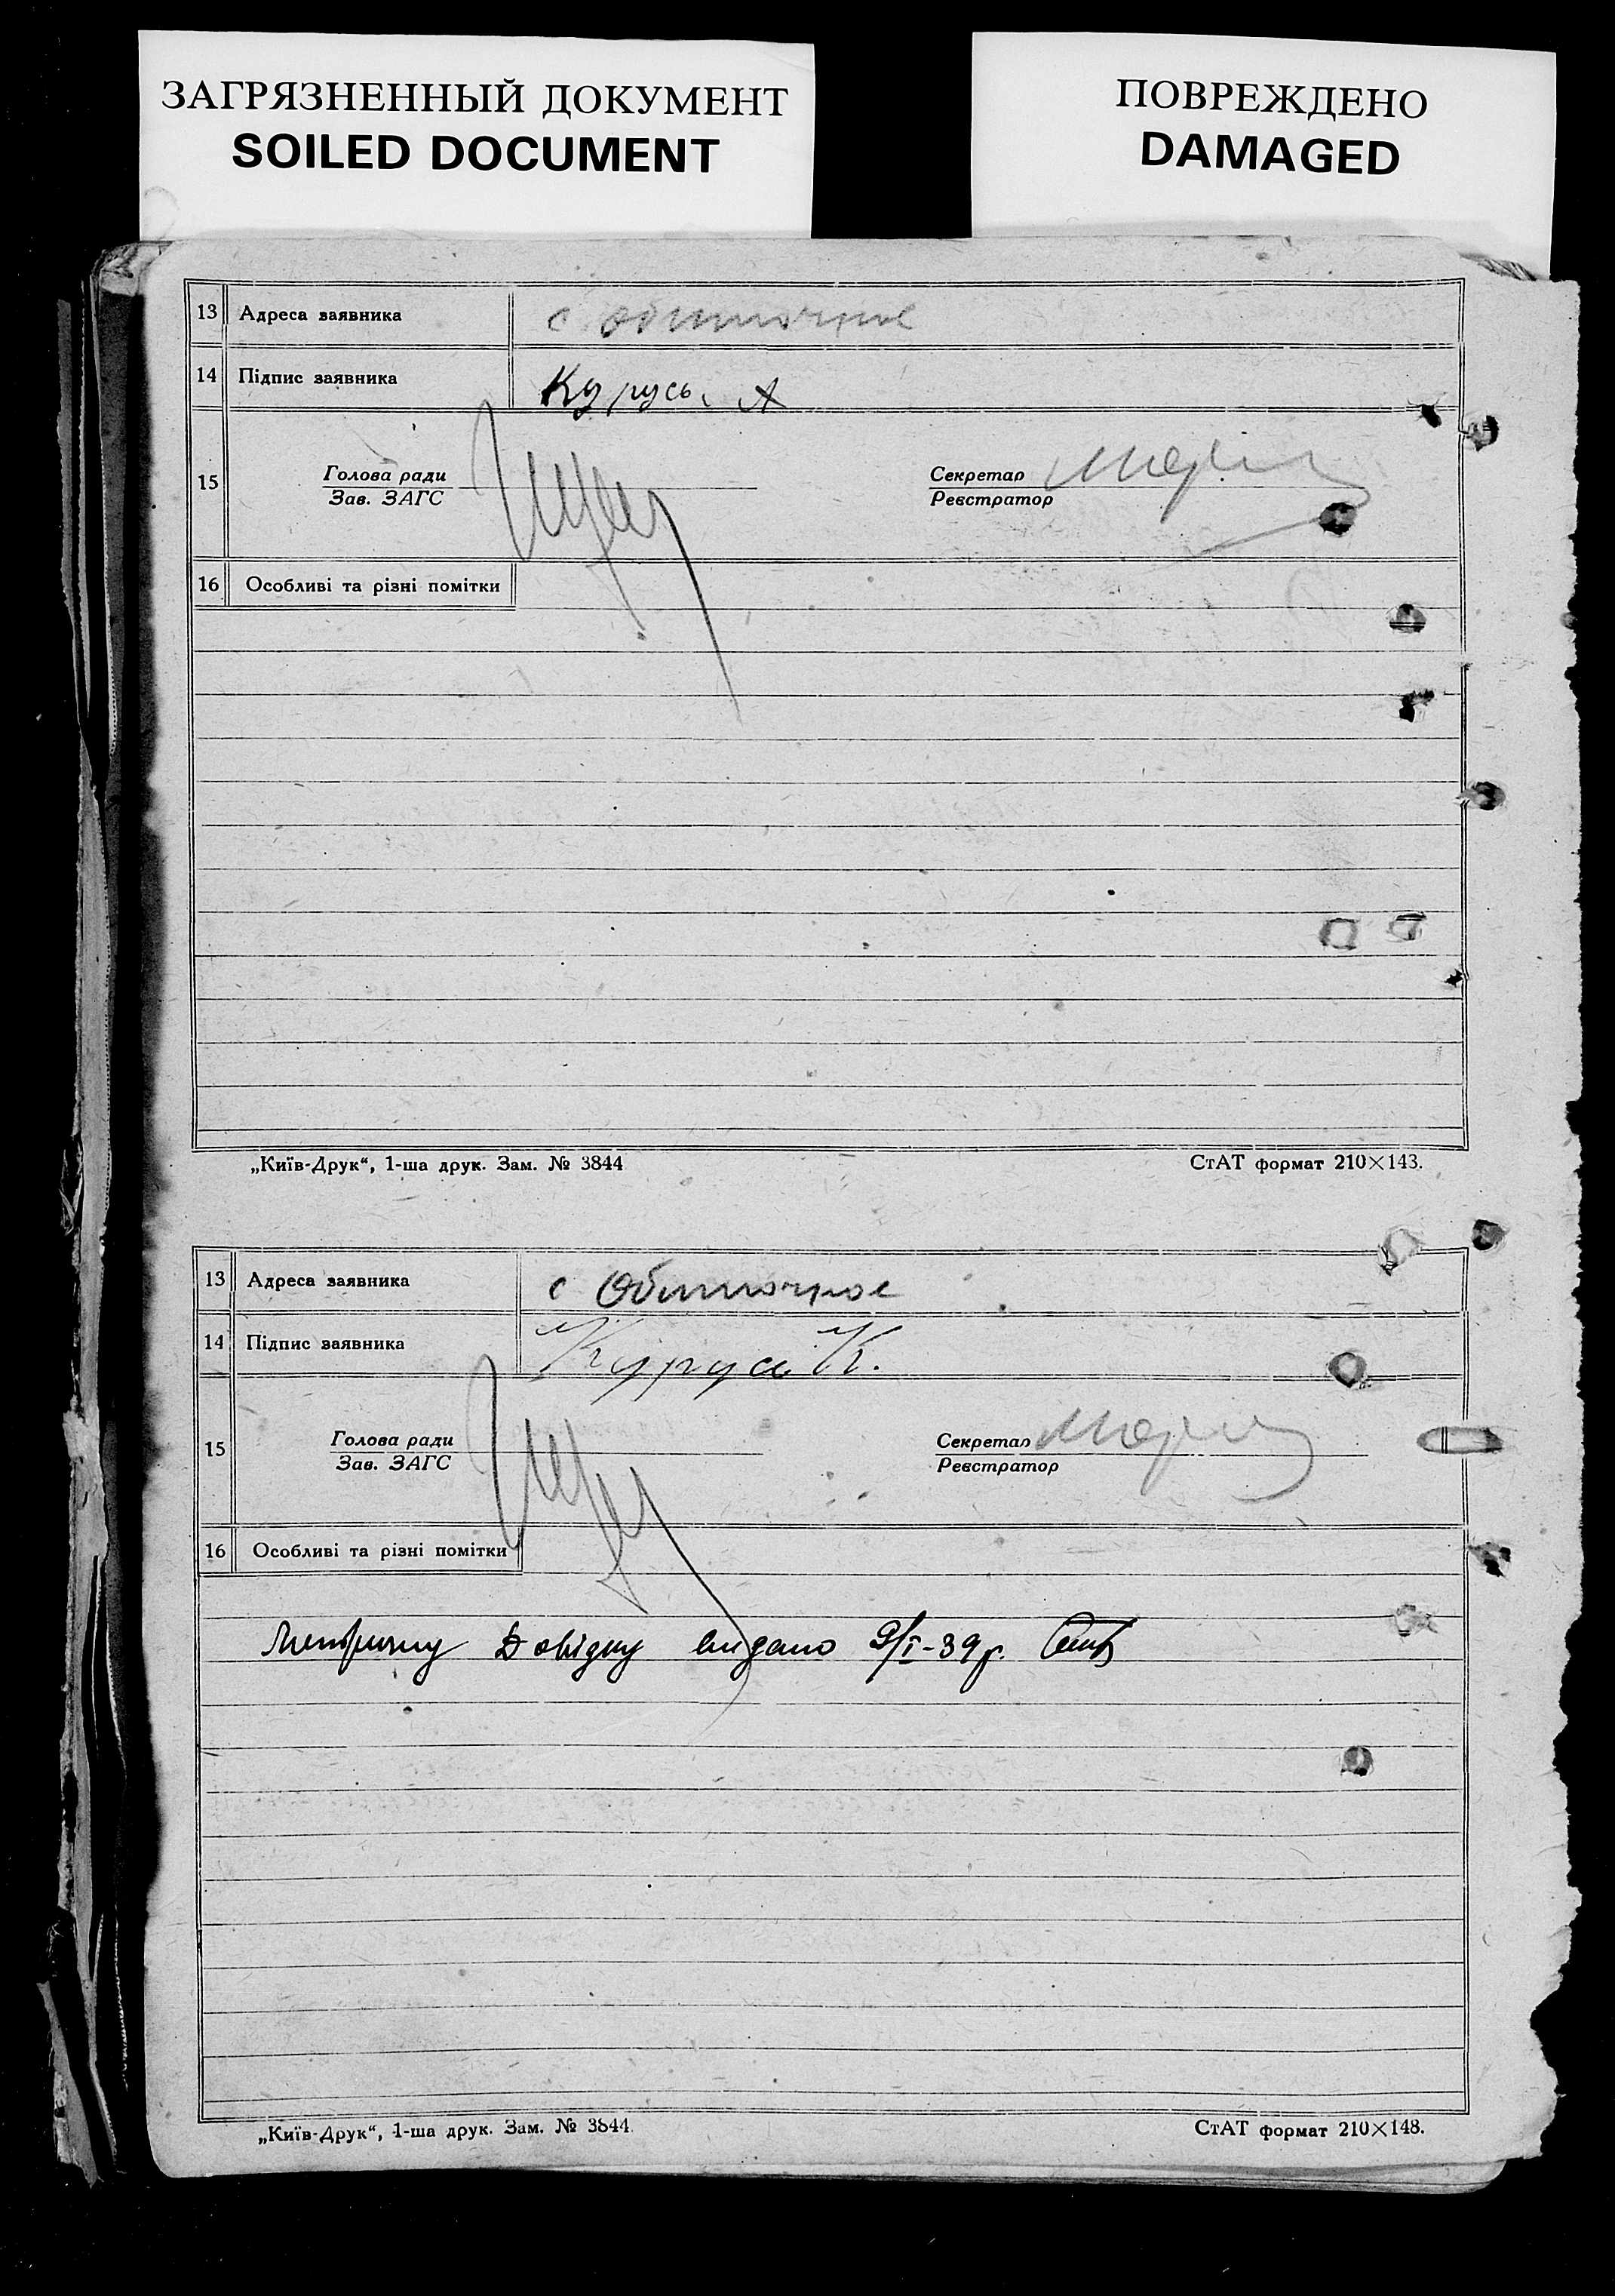 ЗАГРЯЗНЕННЫЙ ДОКУМЕНТ
SOILED DOCUMENT
ПОВРЕЖДЕНО
DAMAGED
13 Адреса заявника с Обиточное
14 Підпис заявника Курусь. А
15 Голова ради Секретар
Зав. ЗАГС Реєстратор
16 Особливі та різні помітки
„Київ-Друк“, 1-ша друк. Зам. № 3844 СтАТ формат 210×143.
13 Адреса заявника с Обиточное
14 Підпис заявника Курусь К.
15 Голова ради Секретар
Зав. ЗАГС Реєстратор
16 Особливі та різні помітки
Метричну Довідку видано 9/I-39р.
„Київ-Друк“, 1-ша друк. Зам. № 3844 СтАТ формат 210×148.